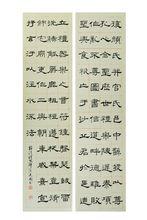 復顏氏并官氏邑中繇發以尊
孔心念聖歷世禮樂陵遲秦項
作亂不尊圖書倍道畔德離敗
聖輿食糧亡于沙丘君於是造
立禮器樂之音符鍾磬瑟鼓雷
洗觴觚爵鹿柤梪籩柉禁壺脩
飾宅廟更作二輿朝車威熹宣
抒玄汙以注水流法